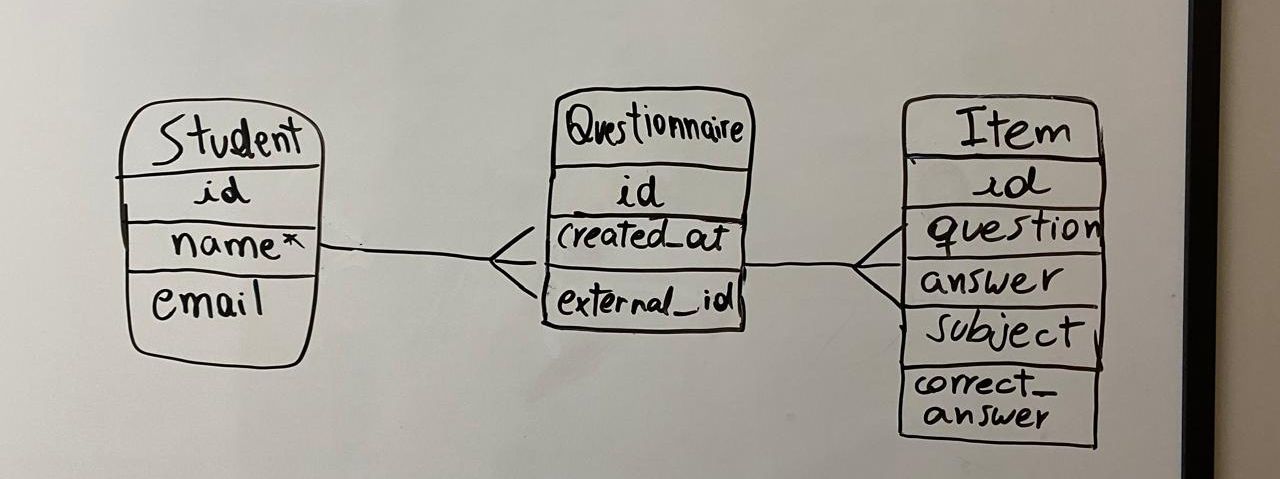 Student
id
name*
email
Questionnaire
id
created_at
external_id
Item
id
question
answer
subject
correct_
answer